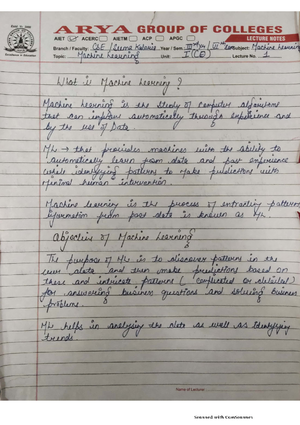 ARYA GROUP OF COLLEGES
AIET ACERC AIETM ACP APGC LECTURE NOTES
Branch / Faculty: CSE / Seema Kalonia Year / Sem: Subject: Machine Learning
Topic: Machine Learning Unit: I (CO) Lecture No. 1
What is Machine Learning ?
Machine Learning is the study of computer algorithms
that can improve automatically through experience and
by the use of Data.
ML → that provides machines with the ability to
automatically learn from data and past experience
while identifying patterns to make predictions with
minimal human intervention.
Machine Learning is the process of extracting pattern
information from past data is known as ML.
Objective of Machine Learning
The purpose of ML is to discover patterns in the
user data and then make predictions based on
these and intricate patterns ( complicated or detailed)
for answering business questions and solving business
problems.
ML helps in analysing the data as well as identifying
trends.
Name of Lecturer
Scanned with CamScanner